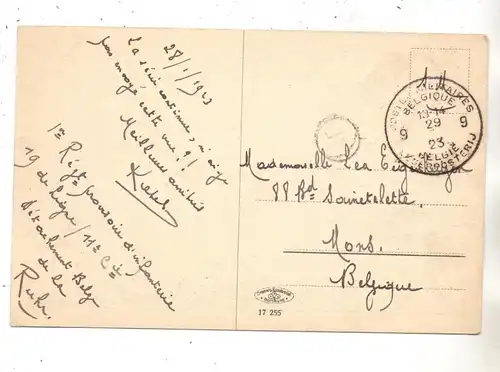 28/1/1923
La série continue, n'ai-je
pas envoyé cette vue!!
Meilleures amitiés
1er Régt provisoire d'infanterie
19 de Liège / 11e Cie
Détachement Belge
de la
Ruhr.
POSTES MILITAIRES
BELGIQUE
13-14
29
9 9
23
BELGIE
LEGERPOSTERIJ
Mademoiselle Léa
88 Bd Sainctelette.
Mons.
Belgique
17 255